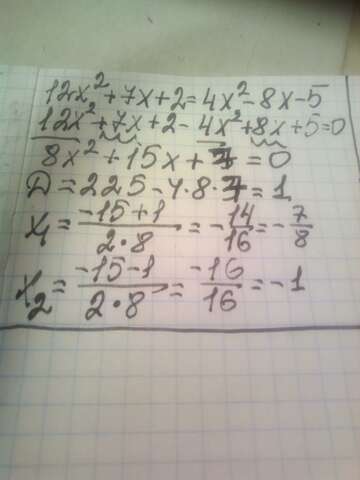 12x²+7x+2=4x²-8x-5
12x²+7x+2-4x²+8x+5=0
8x²+15x+7=0
D=225-4·8·7=1
x₁=(-15+1)/(2·8)=-14/16=-7/8
x₂=(-15-1)/(2·8)=-16/16=-1